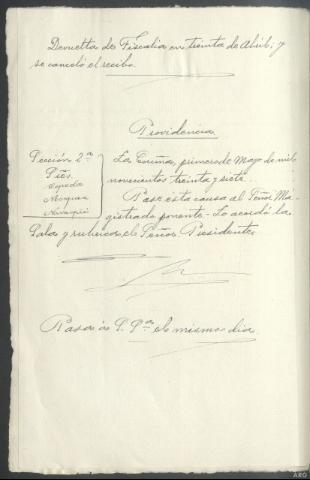 Devuelta de Fiscalía en treinta de Abril; y
se canceló el recibo.
Providencia
Sección 2ª
Sres
Cepeda
La Coruña, primero de Mayo de mil
novecientos treinta y siete.
Pase esta causa al Señor Ma-
gistrado ponente. Lo acordó la
Sala y rubrica el Señor Presidente
Pasa a S. Sª el mismo dia.
ARG